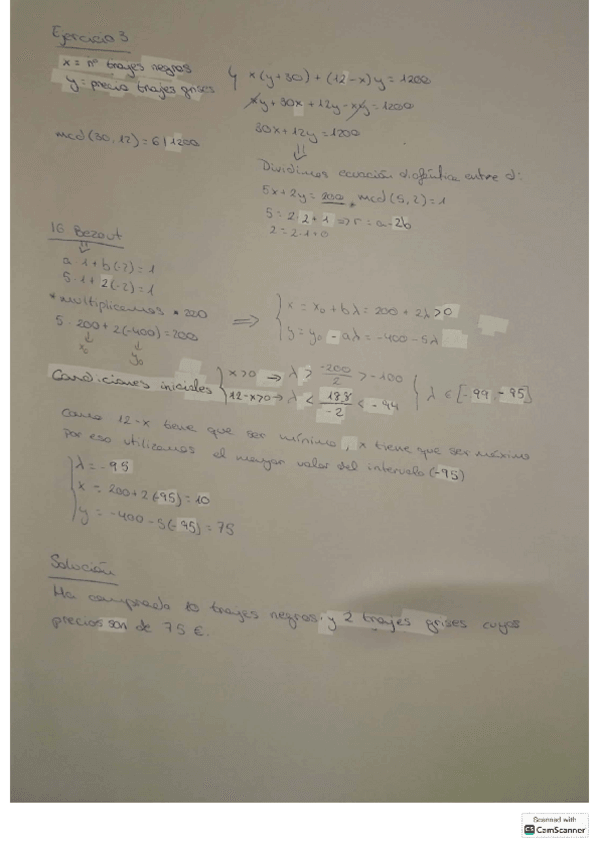 Ejercicio 3
x = nº trajes negros
y = precio trajes grises
x(y+30) + (12-x)y = 1200
xy + 30x + 12y - xy = 1200
30x + 12y = 1200
mcd(30,12) = 6 | 1200
⇓
Dividimos ecuación diofántica entre d:
5x + 2y = 200 mcd(5,2) = 1
5 = 2·2+1 ⇒ r = a-2b
2 = 2·1+0
Id Bezout
⇓
a·1 + b(-2) = 1
5·1 + 2(-2) = 1
*multiplicamos * 200
5·200 + 2(-400) = 200
x₀ y₀
⇒
x = x₀ + bλ = 200 + 2λ > 0
y = y₀ - aλ = -400 - 5λ
Condiciones iniciales
x>0 → λ > -200/2 > -100
12-x>0 → λ < 188/-2 < -94
λ ∈ [-99, -95]
Como 12-x tiene que ser mínimo, x tiene que ser máximo
Por eso utilizamos el mayor valor del intervalo (-95)
λ = -95
x = 200 + 2(-95) = 10
y = -400 - 5(-95) = 75
Solución
Ha comprado 10 trajes negros y 2 trajes grises cuyos
precios son de 75 €.
Scanned with
CS CamScanner